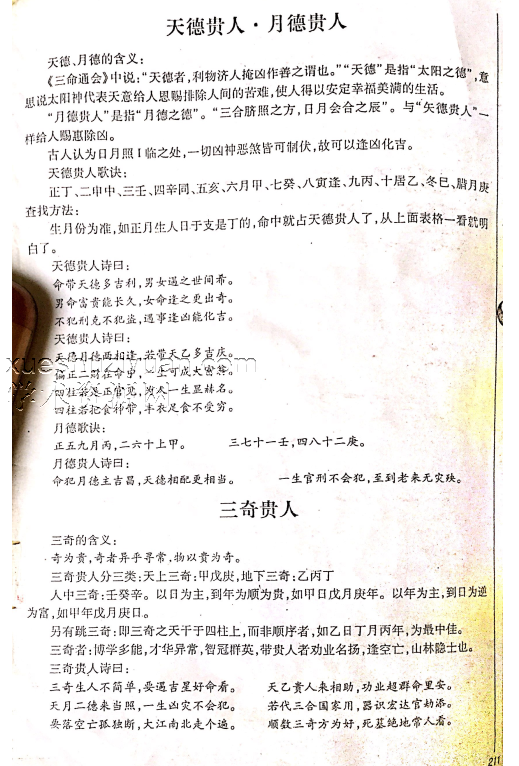 天德贵人·月德贵人
天德、月德的含义：
《三命通会》中说：“天德者，利物济人掩凶作善之谓也。”“天德”是指“太阳之德”，意
思说太阳神代表天意给人恩赐排除人间的苦难，使人得以安定幸福美满的生活。
“月德贵人”是指“月德之德”。“三合脐照之方，日月会合之辰”。与“矢德贵人”一
样给人赐惠除凶。
古人认为日月照临之处，一切凶神恶煞皆可制伏，故可以逢凶化吉。
天德贵人歌诀：
正丁、二申中、三壬、四辛同、五亥、六月甲、七癸、八寅逢、九丙、十居乙、冬巳、腊月庚
查找方法：
生月份为准，如正月生人日于支是丁的，命中就占天德贵人了，从上面表格一看就明
白了。
天德贵人诗曰：
命带天德多吉利，男女遇之世间希。
男命富贵能长久，女命逢之更出奇。
不犯刑克不犯盗，遇事逢凶能化吉。
天德贵人诗曰：
天德月德两相逢，若带天乙多吉庆。
偏正二财在命中，一生可成大富翁。
四柱若是正官见，岁人一生显赫名。
四柱若把食神带，丰衣足食不受穷。
月德歌诀：
正五九月丙，二六十上甲。 三七十一壬，四八十二庚。
月德贵人诗曰：
命犯月德主吉昌，天德相配更相当。 一生官刑不会犯，至到老来无灾殃。
三奇贵人
三奇的含义：
奇为贵，奇者异乎寻常，物以贵为奇。
三奇贵人分三类：天上三奇：甲戊庚，地下三奇：乙丙丁
人中三奇：壬癸辛。以日为主，到年为顺为贵，如甲日戊月庚年。以年为主，到日为逆
为富，如甲年戊月庚日。
另有跳三奇：即三奇之天干于四柱上，而非顺序者，如乙日丁月丙年，为最中佳。
三奇者：博学多能，才华异常，智冠群英，带贵人者劝业名扬，逢空亡，山林隐士也。
三奇贵人诗曰：
三奇生人不简单，要遇吉星好命看。 天乙贵人来相助，功业超群命里安。
天月二德来当照，一生凶灾不会犯。 若代三合国家用，器识宏达官勋添。
要落空亡孤独断，大江南北走个遍。 顺数三奇方为好，死墓绝地常人看。
211
xueshuziyuan.com